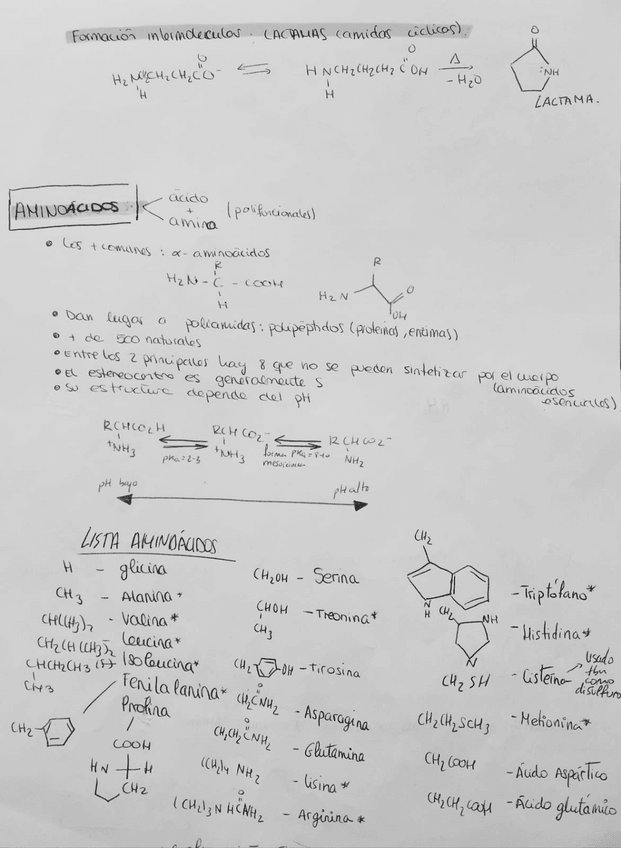 Formación intermoleculas : LACTAMAS (amidas cíclicas).
H₂N CH₂CH₂CH₂CO⁻ ⇌ H NCH₂CH₂CH₂ C OH Δ -H₂O
O
NH
LACTAMA.
AMINOÁCIDOS
ácido
+
amina
(polifuncionales)
• Los + comunes : α- aminoácidos
R
H₂N - C - COOH
H
R
H₂N
O
OH
• Dan lugar a poliamidas : polipéptidos (proteínas, enzimas)
• + de 500 naturales
• Entre los 2 principales hay 8 que no se pueden sintetizar por el cuerpo
(aminoácidos esenciales)
• El estereocentro es generalmente S
• Su estructura depende del pH
RCHCO₂H RCHCO₂⁻ RCHCO₂⁻
+NH₃ pKa=2-3 +NH₃ forma NH₂
pH bajo pH alto
LISTA AMINOÁCIDOS
H - glicina
CH₃ - Alanina
CH(CH₃)₂ - Valina*
CH₂CH(CH₃)₂ - Leucina*
CHCH₂CH₃ (S) - Isoleucina*
CH₃
Fenilalanina*
CH₂
Prolina
COOH
HN H
CH₂
CH₂OH - Serina
CHOH - Treonina*
CH₃
CH₂ OH - Tirosina
O
CH₂CNH₂ - Asparagina
O
CH₂CH₂CNH₂ - Glutamina
(CH₂)₄ NH₂ - Lisina*
(CH₂)₃ NHCNH₂ - Arginina*
CH₂
N
H
- Triptófano*
CH₂ NH
N
- Histidina*
CH₂SH - Cisteína
usado
tbn
como
disulfuro
CH₂CH₂SCH₃ - Metionina*
CH₂COOH - Ácido Aspártico
CH₂CH₂COOH - Ácido glutámico